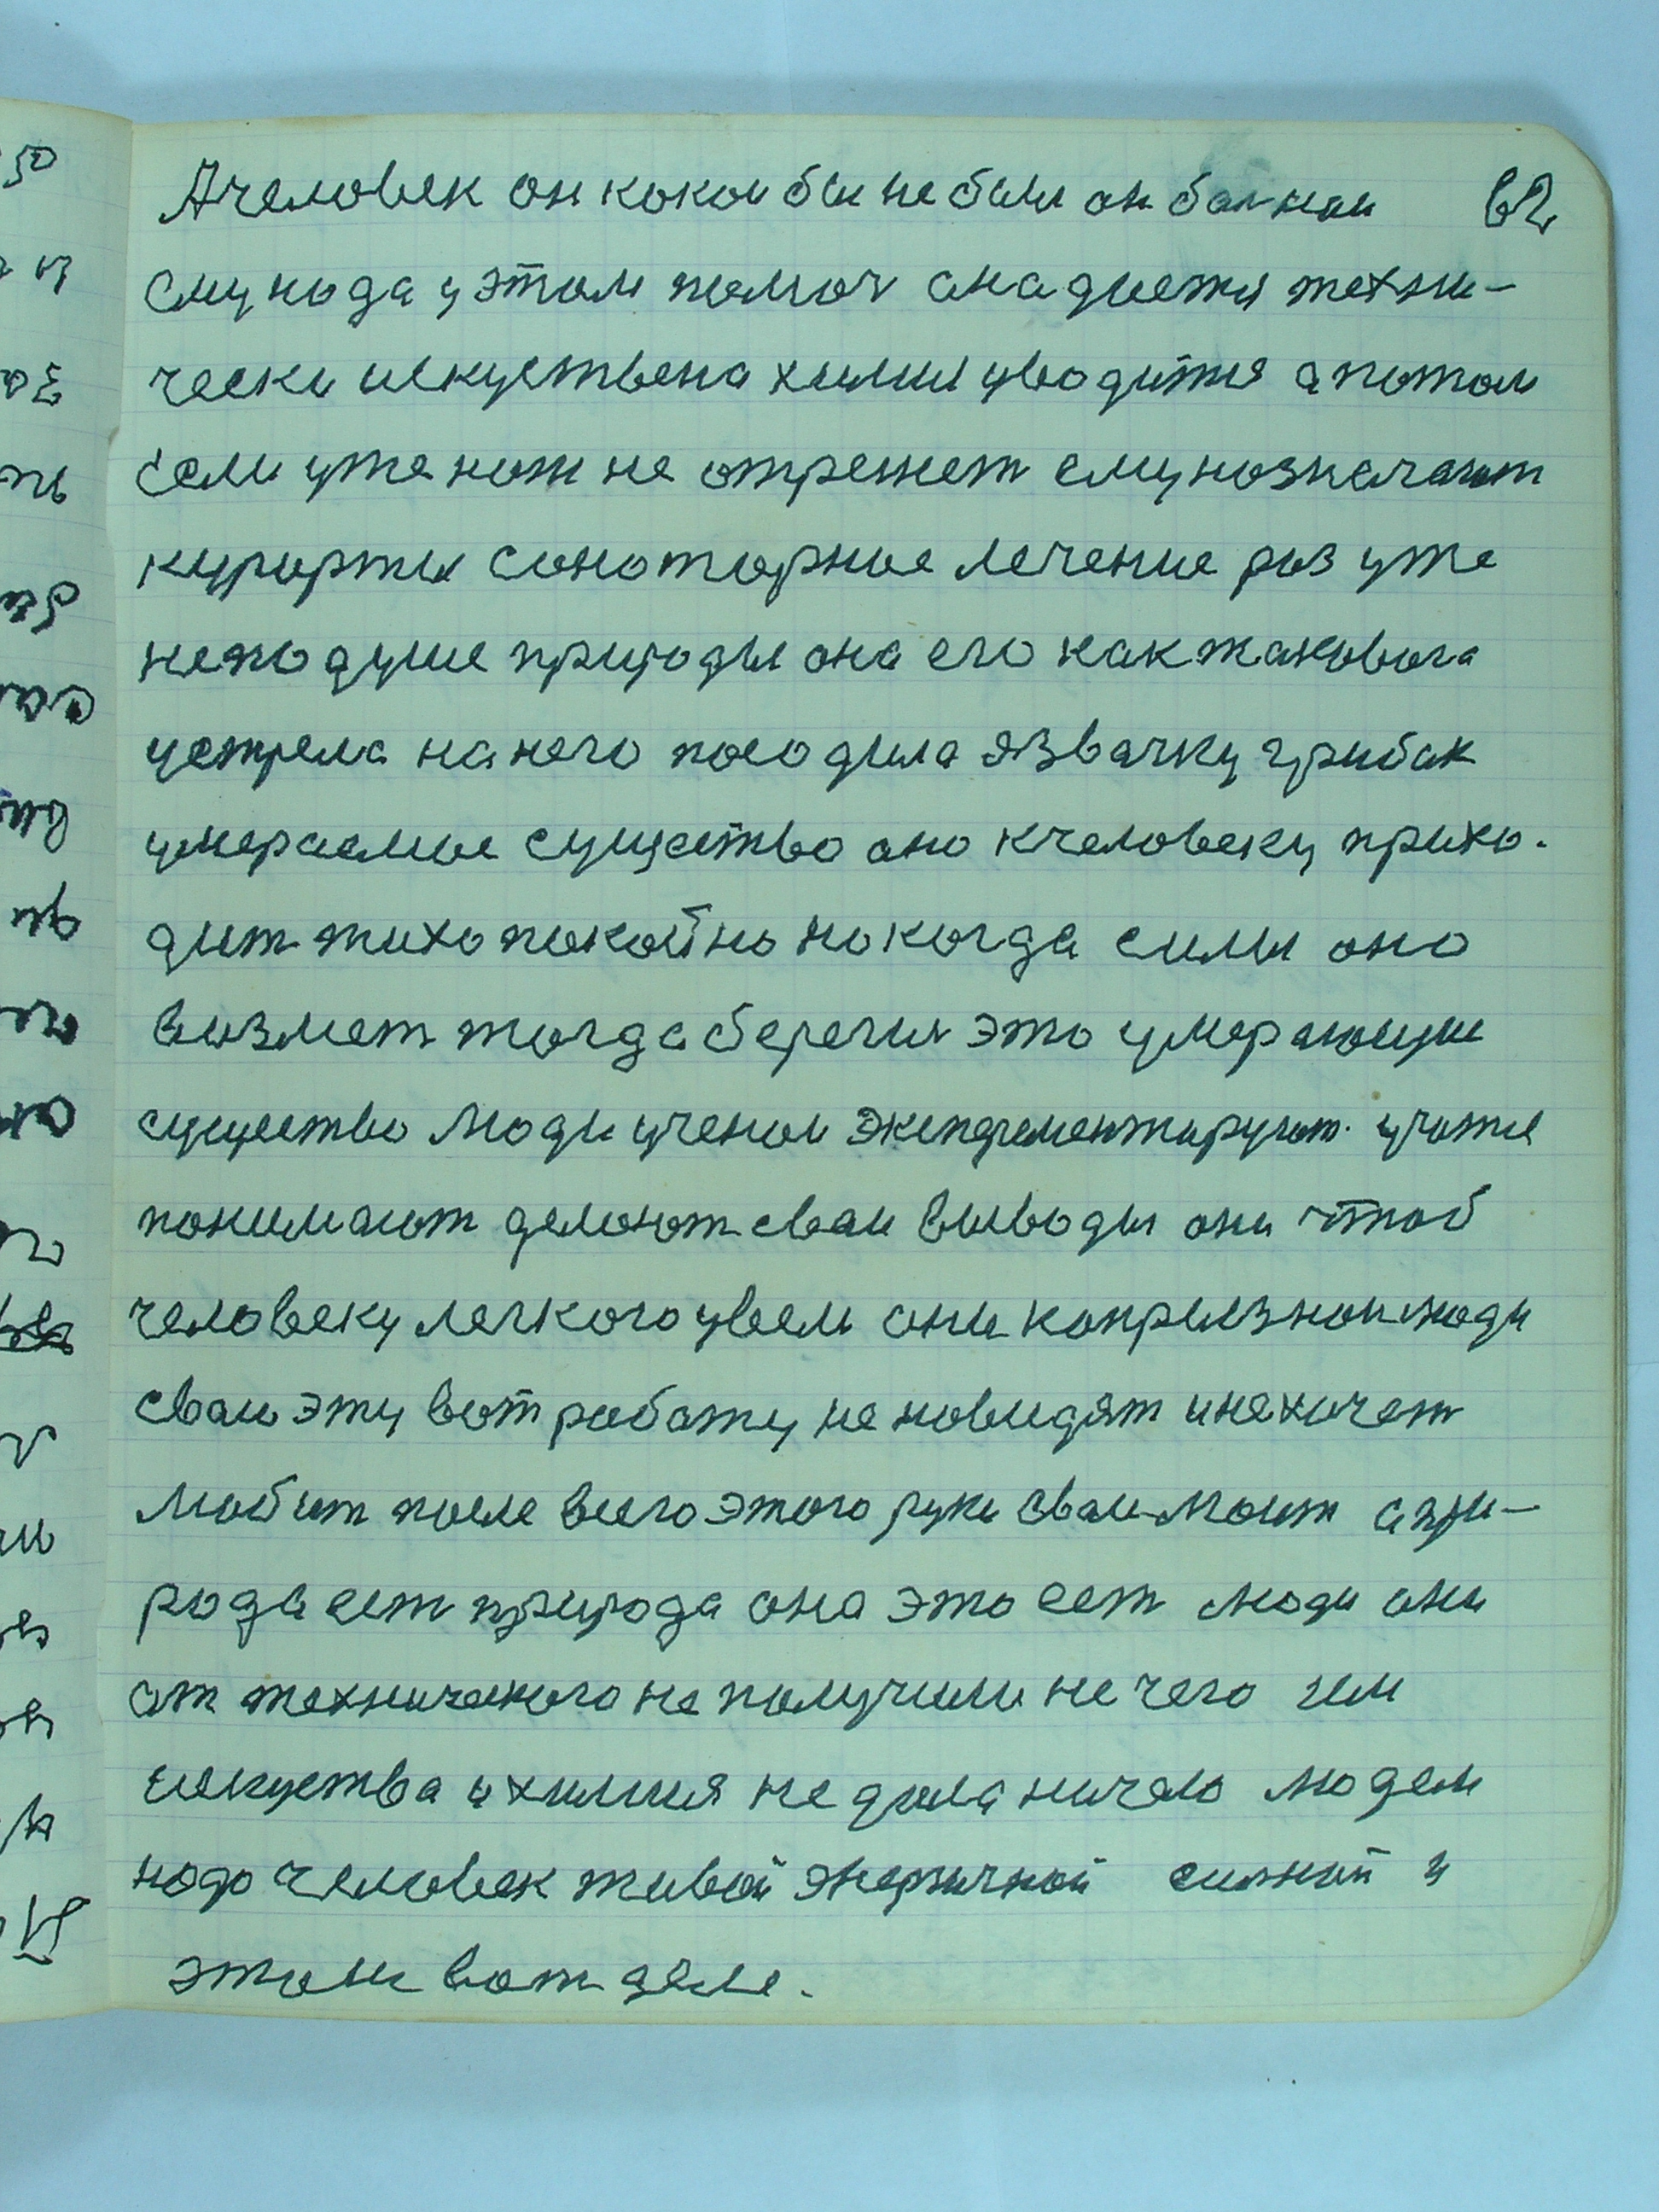 А человек он какои бы не был он болнои 62
ему нада у этом помоч она дается техни-
чески искуствена химия уводится а потом
если уже нож не отрежет ему назначают
курорты санаторное лечение раз уже
непо душе природы она его как таковога
устрела на него посодила язвачку грибак
умераемое существо оно к человеку прихо-
дит тихо покойно но когда силы оно
возмет тогда берегис это умерающуи
существо люди ученои эксперементируют учатся
понимают делают сваи выводы они чтоб
человеку легкого увели они капрызнои люди
сваю эту вот работу не новидят и не хочет
любит после всего этого руки сваи моит а при-
рода ест природа она это ест люди они
от технического не получили не чего им
искуства и химия не дала ничего людем
надо человек живой энергичной силний у
этом вот деле.